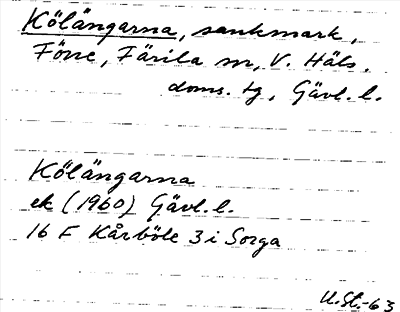 Kölängarna, sankmark,
Föne, Färila sn, V. Häls.
doms. tg, Gävl. l.
Kölängarna
ek (1960) Gävl. l.
16 F Kårböle 3 i Sorga
U.St.-63